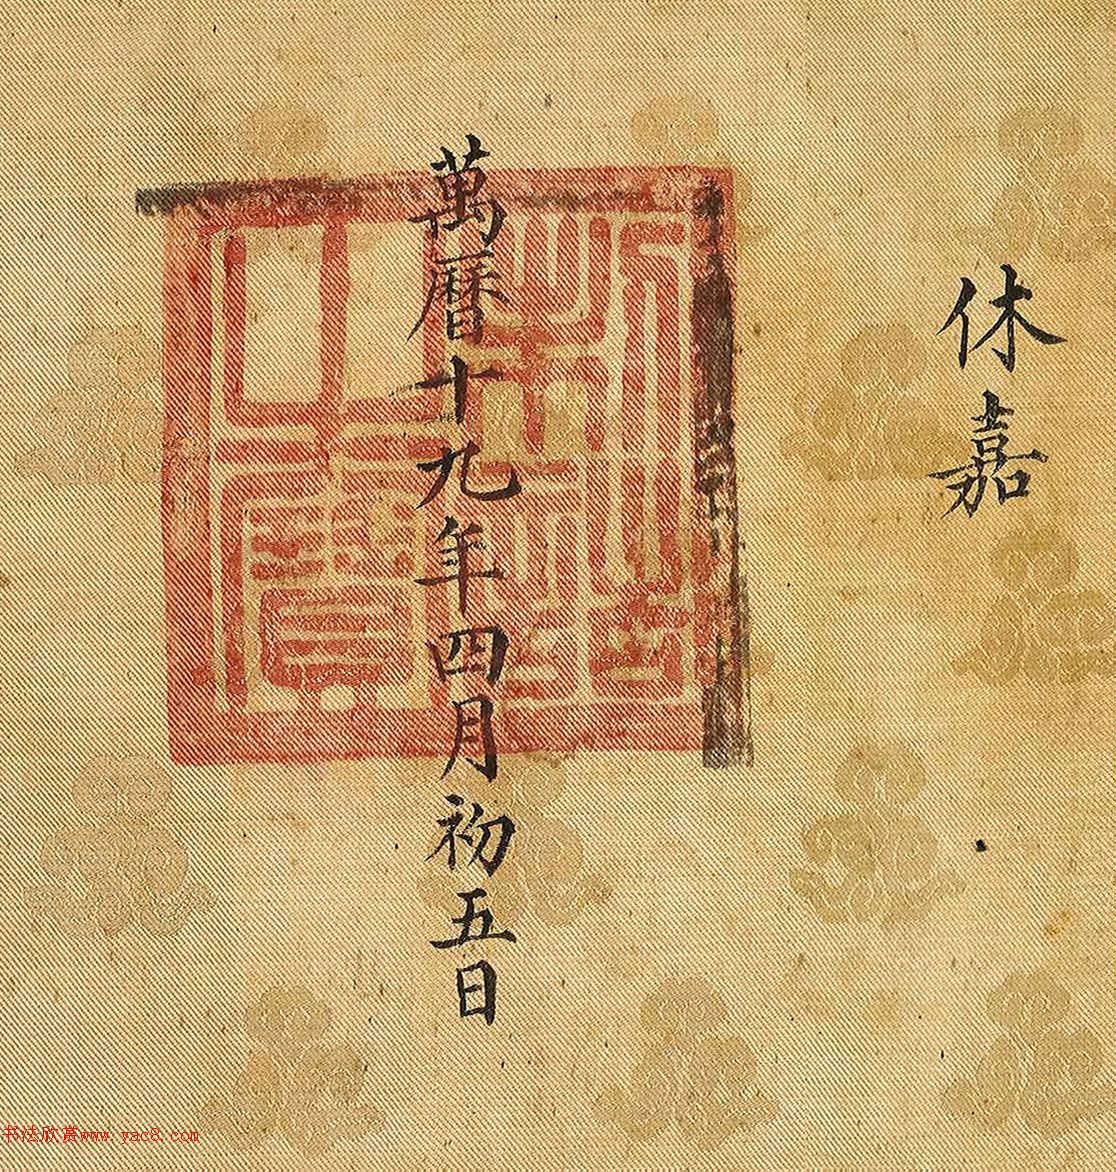 休嘉
萬曆十九年四月初五日
制誥之寶
书法欣赏www.yac8.com